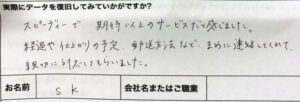 実際にデータを復旧してみていかがですか？
スピーディーで 期待以上のサービスだと感じました。
経過や仕上がりの予定、郵送方法など、まめに連絡してくれて、
親切に対応してもらいました。
お名前 SK 会社名またはご職業